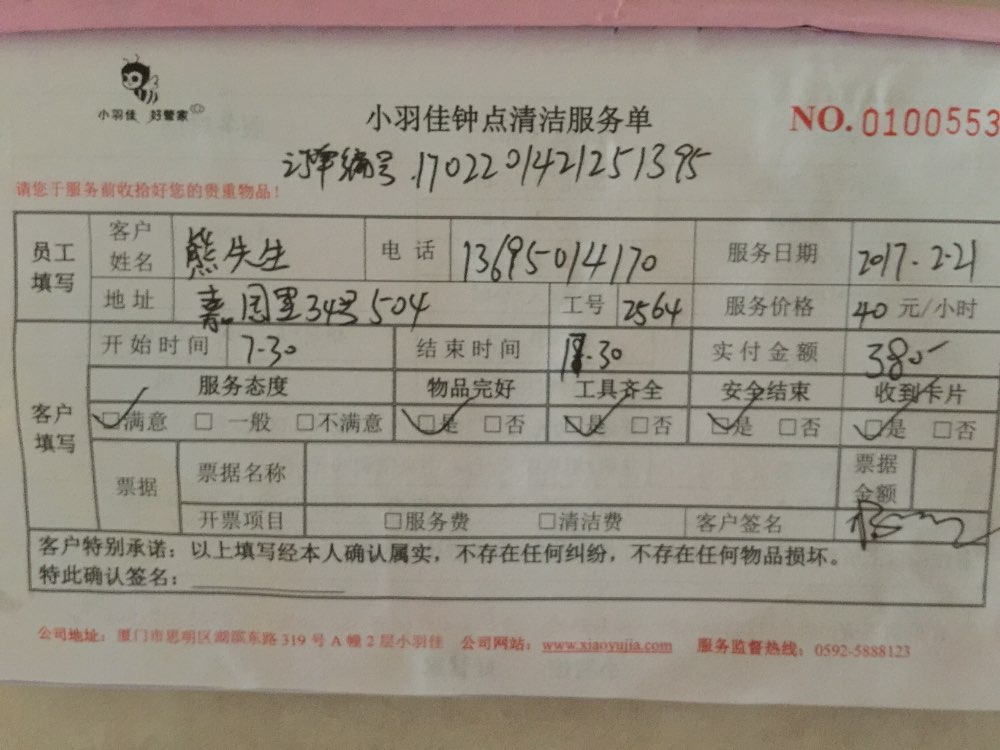 小羽佳 好管家
小羽佳钟点清洁服务单
NO. 0100553
订单编号.17022014212513​95
请您于服务前收拾好您的贵重物品！
员工填写 客户姓名 熊先生 电话 13695014170 服务日期 2017.2.21
地址 嘉园里34号504 工号 2564 服务价格 40 元/小时
客户填写 开始时间 7.30 结束时间 18.30 实付金额 380
服务态度 物品完好 工具齐全 安全结束 收到卡片
☑满意 □一般 □不满意 ☑是 □否 ☑是 □否 ☑是 □否 ☑是 □否
票据 票据名称 票据金额
开票项目 □服务费 □清洁费 客户签名
客户特别承诺：以上填写经本人确认属实，不存在任何纠纷，不存在任何物品损坏。
特此确认签名：
公司地址：厦门市思明区湖滨东路 319 号 A 幢 2 层小羽佳 公司网站：www.xiaoyujia.com 服务监督热线：0592-5888123